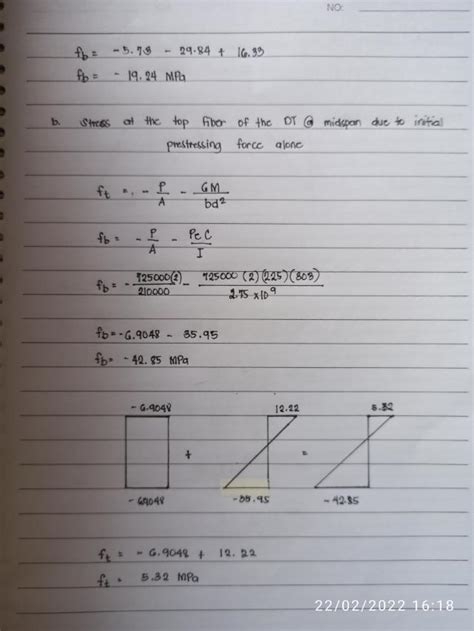 NO:
fb = -5.73 - 29.84 + 16.33
fb = - 19.24 MPa
b. stress at the top fiber of the DT @ midspan due to initial
prestressing force alone
ft = - P/A - GM/bd²
fb = - P/A - PeC/I
fb = - 725000(2)/210000 - 725000 (2)(225)(303)/2.75 x10⁹
fb = -6.9048 - 35.95
fb = - 42.85 MPa
- 6.9048 12.22 5.32
+ =
- 6.9048 -35.95 -42.85
ft = - 6.9048 + 12.22
ft = 5.32 MPa
22/02/2022 16:18